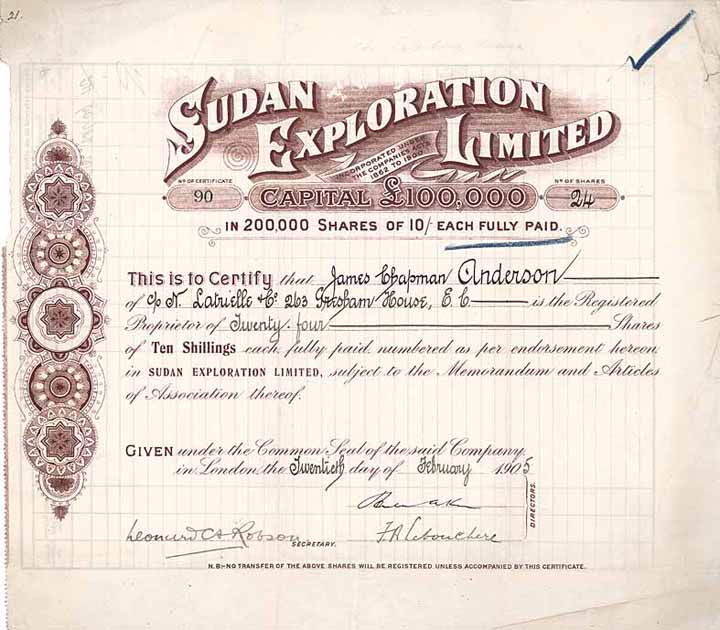 21.
SUDAN
EXPLORATION
LIMITED
INCORPORATED UNDER
THE COMPANIES ACTS
1862 TO 1900
No OF CERTIFICATE
90
CAPITAL £100,000
No OF SHARES
24
IN 200,000 SHARES OF 10/- EACH FULLY PAID.
This is to Certify that James Chapman Anderson
of c/o N. Labrielle & Co 263 Gresham House, E.C. is the Registered
Proprietor of Twenty four Shares
of Ten Shillings each, fully paid, numbered as per endorsement hereon,
in SUDAN EXPLORATION LIMITED, subject to the Memorandum and Articles
of Association thereof.
GIVEN under the Common Seal of the said Company,
in London the Twentieth day of February 1905
DIRECTORS.
Leonard C H Robson
SECRETARY.
N.B:-NO TRANSFER OF THE ABOVE SHARES WILL BE REGISTERED UNLESS ACCOMPANIED BY THIS CERTIFICATE.